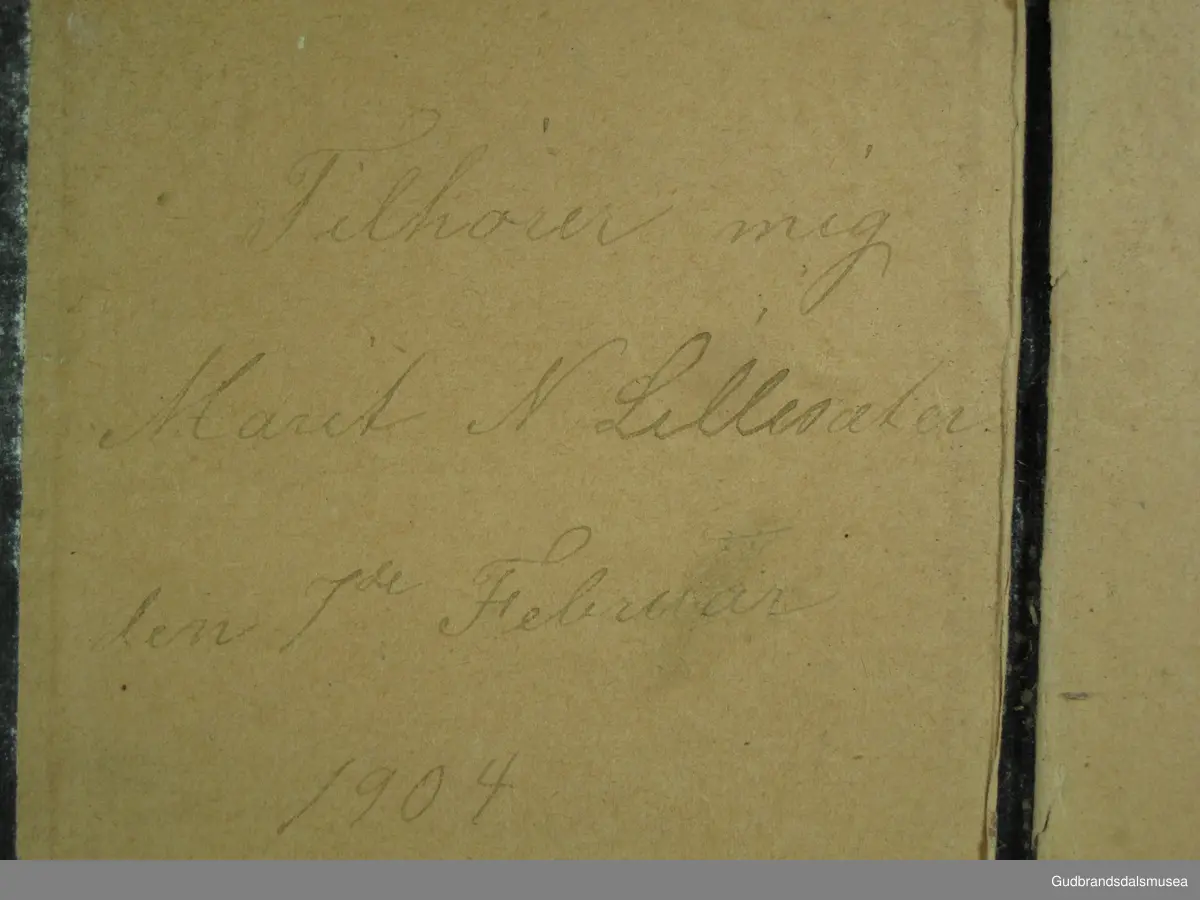 Tilhører mig
Marit N Lillesæter
den 7de Februar
1904
Gudbrandsdalsmusea